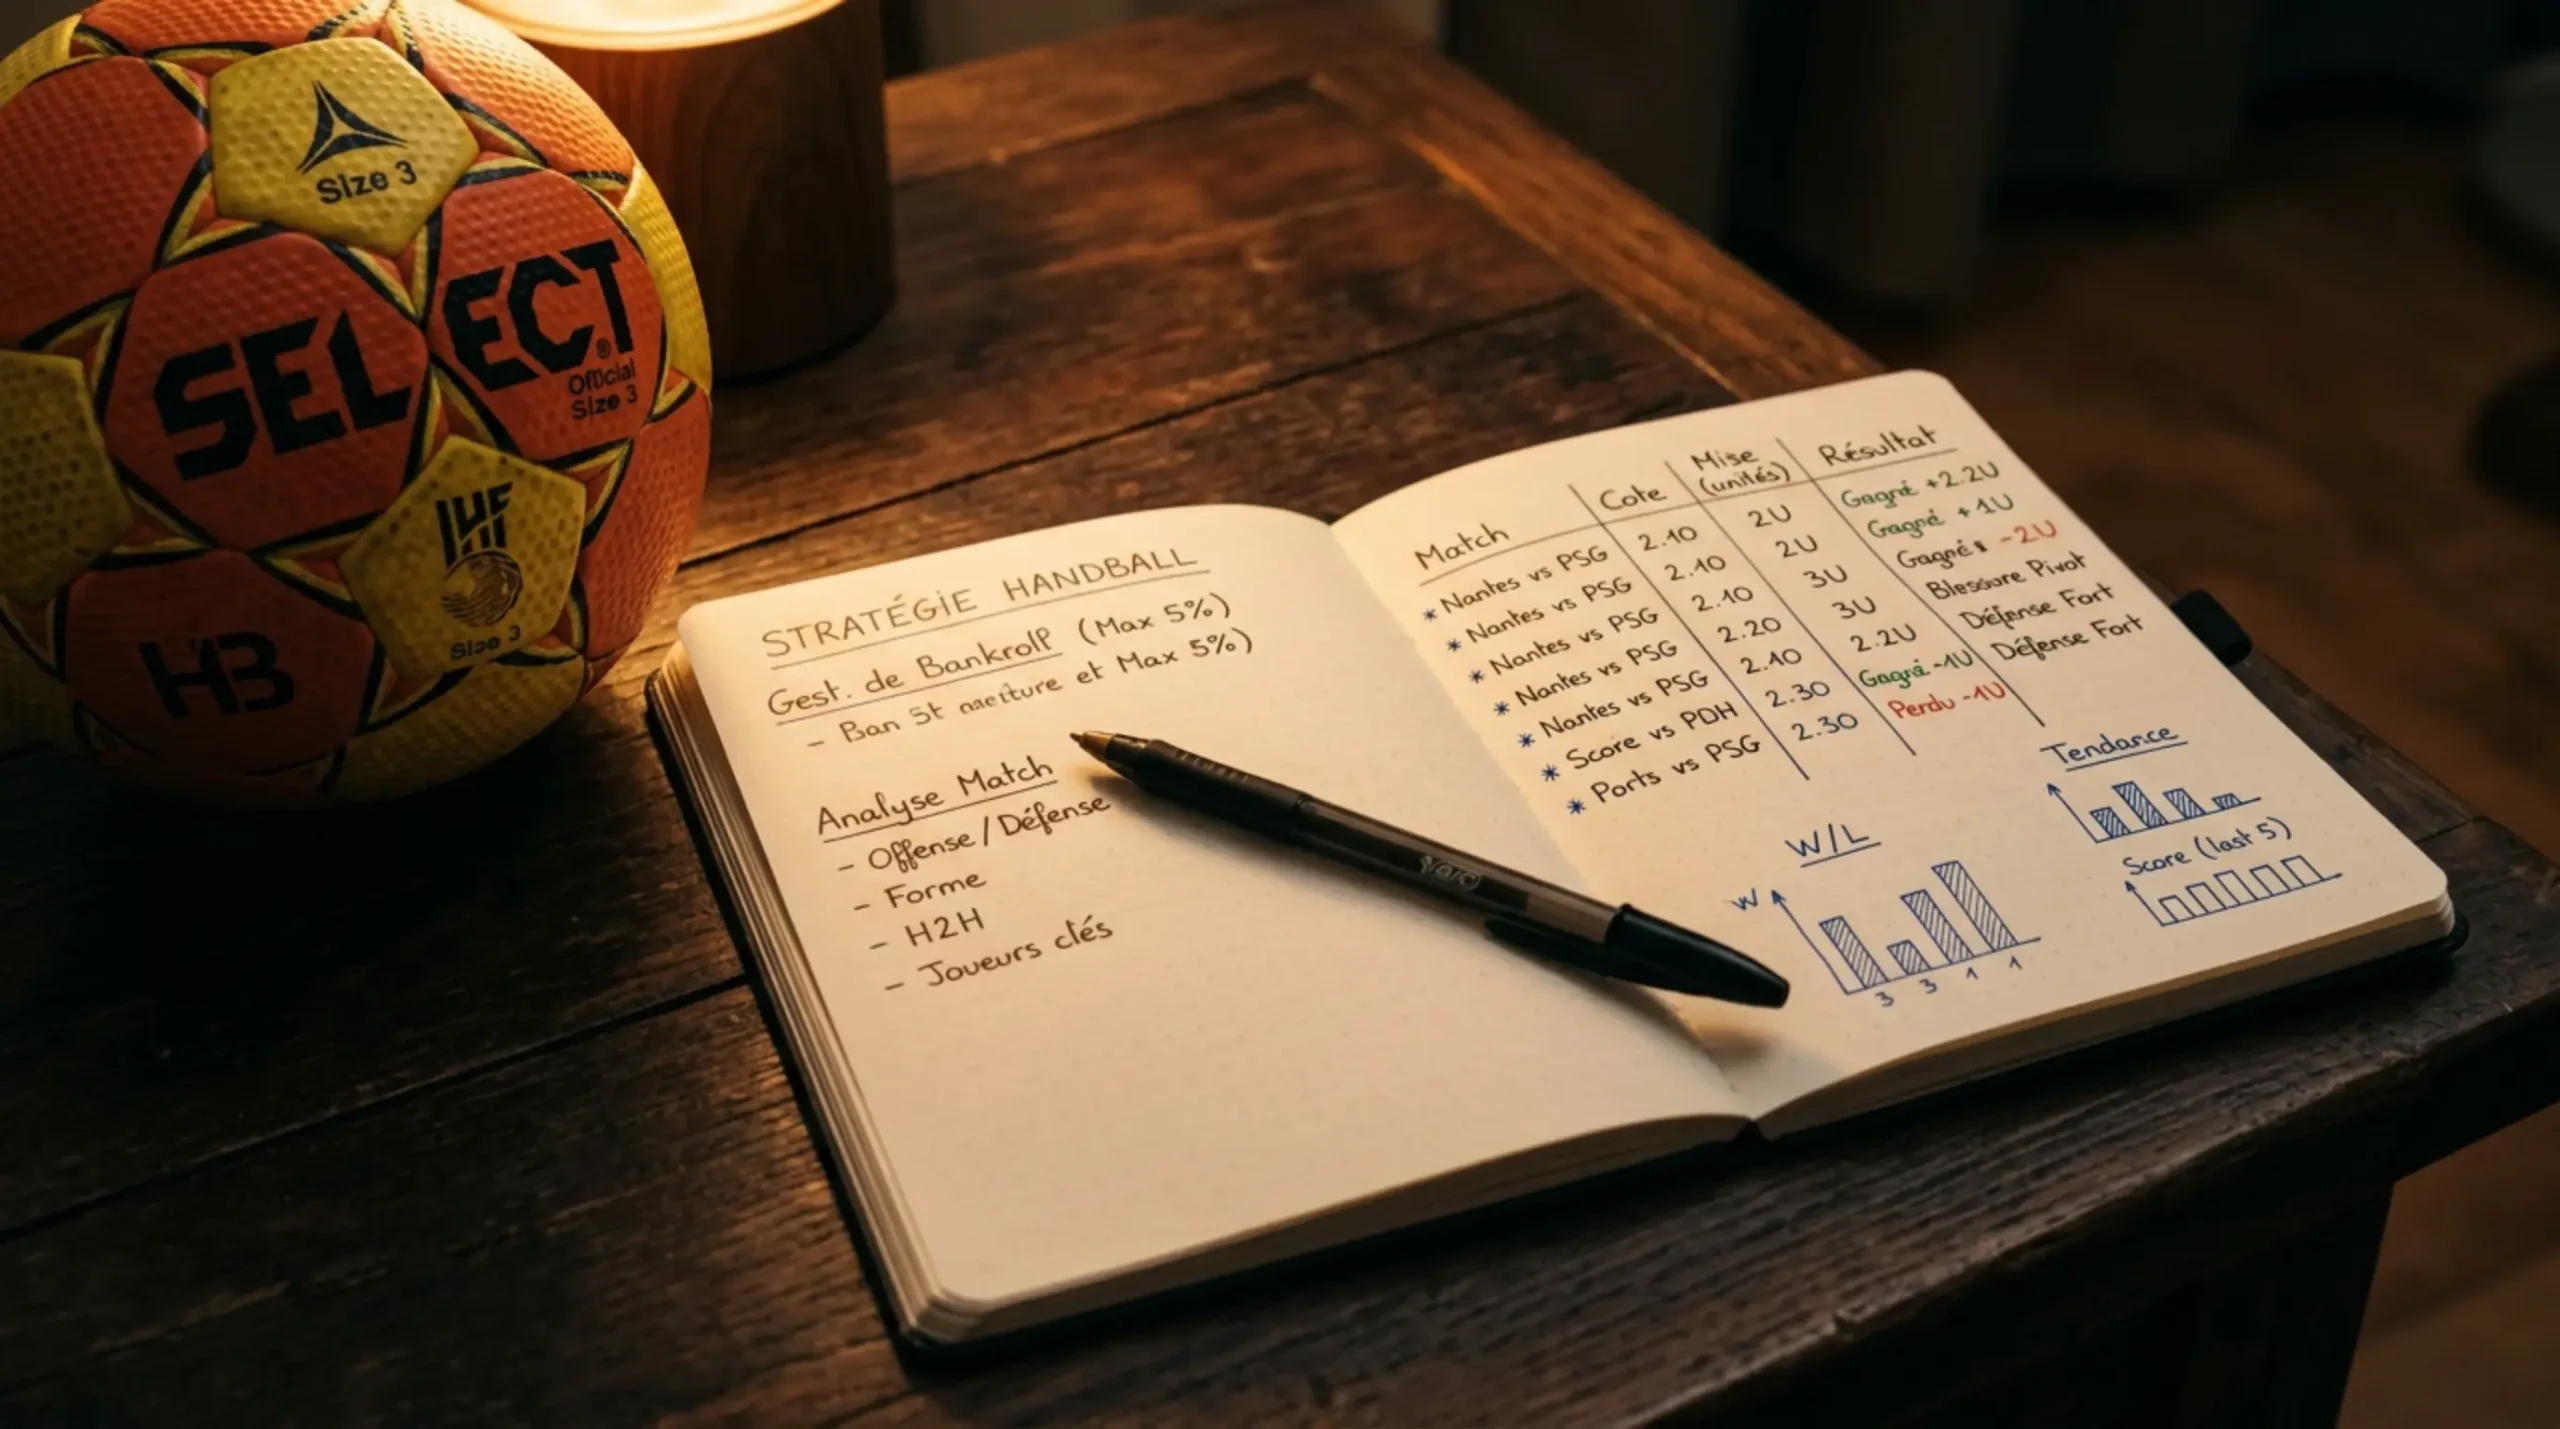 Size 3
SELECT
®
Official
Size 3
IHF
Size 3
HB
STRATÉGIE HANDBALL
Gest. de Bankroll (Max 5%)
- Ban St et Max 5%)
Analyse Match
- Offense / Défense
- Forme
- H2H
- Joueurs clés
Match Cote Mise (unités) Résultat
* Nantes vs PSG 2.10 2U Gagné +2.2U
* Nantes vs PSG 2.10 2U Gagné +1U
* Nantes vs PSG 2.10 3U Gagné -2U
* Nantes vs PSG 2.20 3U Blessure Pivot
* Nantes vs PSG 2.10 2.2U Défense Fort
* Score vs PDH 2.30 Gagné -1U Défense Fort
* Ports vs PSG 2.30 Perdu -1U
W/L
W
3 3 1 1
Tendance
Score (last 5)